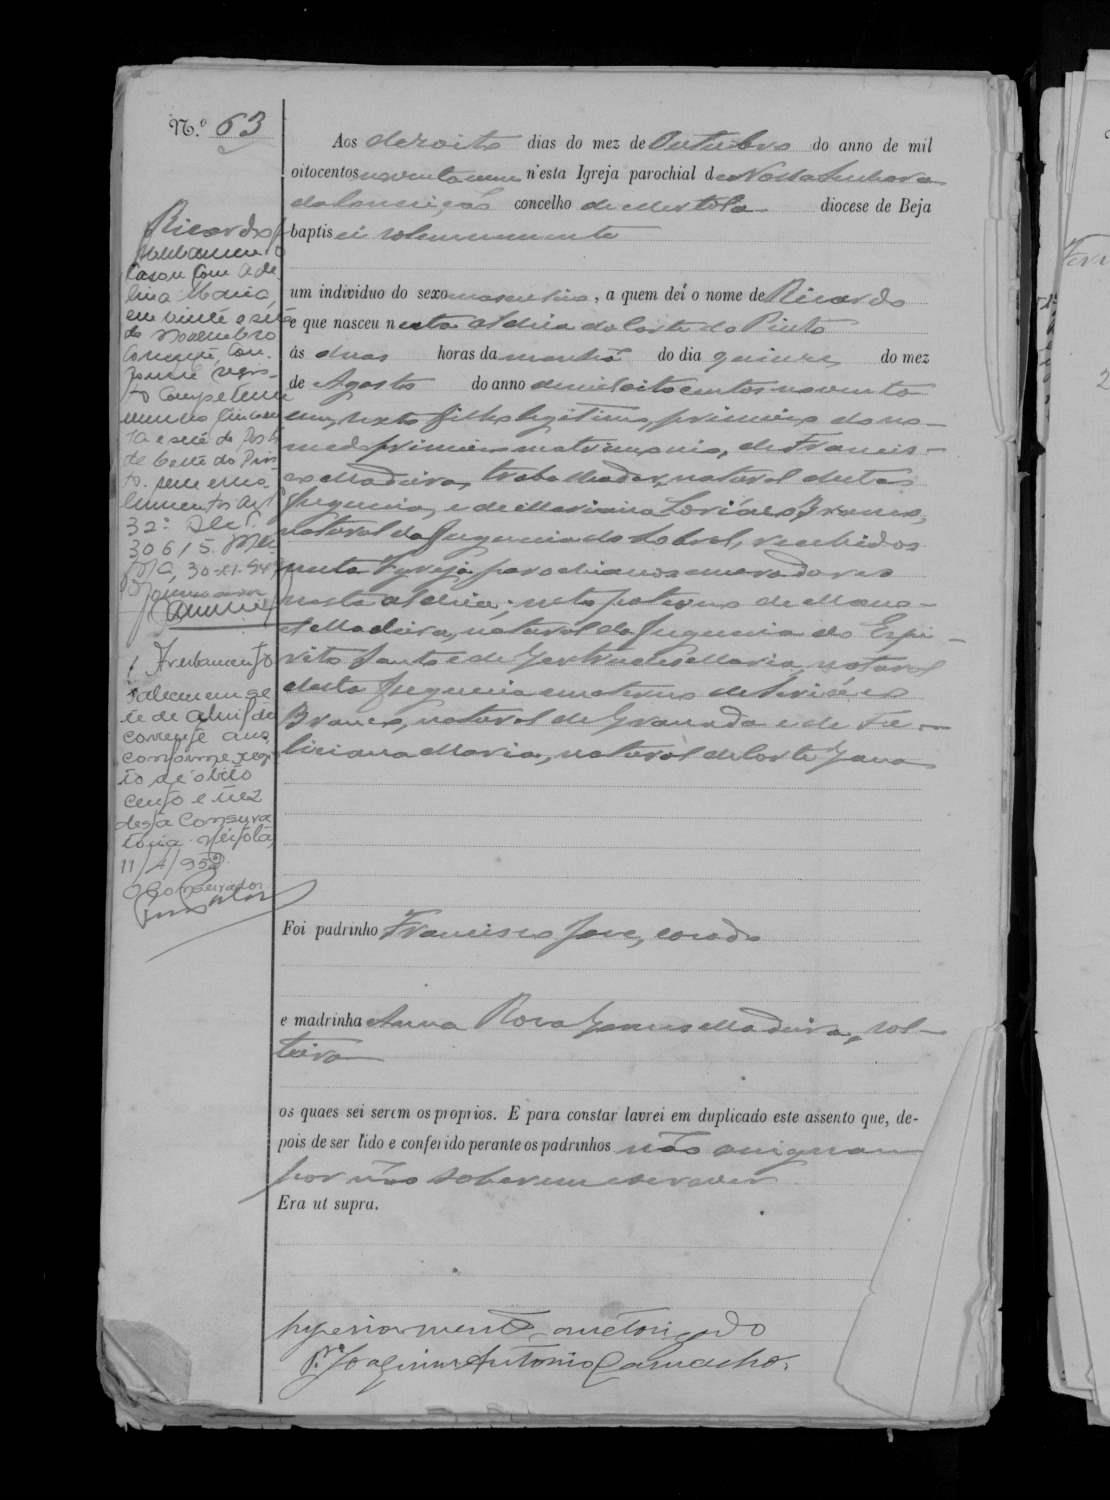 N.º 63
Aos dezoito dias do mez de Outubro do anno de mil
oitocentos noventa e um n'esta Igreja parochial de Nossa Senhora
da Conceição concelho de Mertola diocese de Beja
baptisei solemnemente
um individuo do sexo masculino, a quem deí o nome de Ricardo
e que nasceu nesta aldeia da Corte do Pinto
ás duas horas da manhã do dia quinze do mez
de Agosto do anno de mil oito centos noventa
e um, sexto filho legitimo, primeiro do no-
me do primeiro matrimonio, de Francis-
co Madeira, trabalhador, natural desta
freguezia, e de Marianna Branco,
natural da freguezia do Sobral, recebidos
nesta Igreja parochianos e moradores
nesta aldeia; neto paterno de Mano-
el Madeira, natural da freguezia do Espi-
rito Santo e de Gertrudes Maria, natural
desta freguezia e materno de
Branco, natural de Granada e de Fe-
liciana Maria, natural de Corte
Foi padrinho Francisco José, casado
e madrinha Anna Rosa Madeira, sol-
teira
os quaes sei serem os proprios. E para constar lavrei em duplicado este assento que, de-
pois de ser lido e conferido perante os padrinhos não assignam
por não saberem escrever
Era ut supra.
superiormente auctorizado
P.e Joaquim Antonio Camacho.
Ricardo
Casou com Ade-
lina Maria,
em vinte e sete
de Novembro
corrente, con-
forme regis-
to competente
numero cincoen
ta e seis do Posto
de Corte do Pin-
to. sem emo-
lumentos art.
32º Dec.
30615. Mer
tola, 30-XI-
1 Averbamento
Faleceu em se
te de abril do
corrente ano
conforme regis
to de obito
cento e dez
desta Conserva
toria. Mertola,
11/4/95
O Conservador